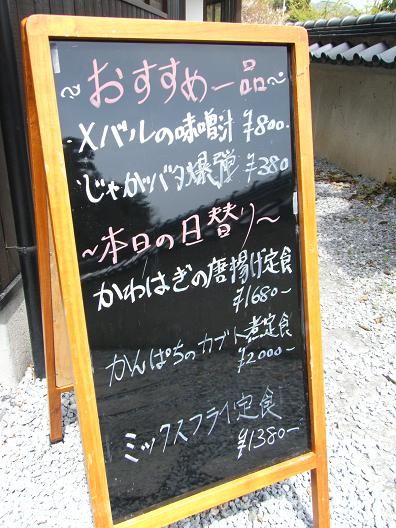 ～おすすめ一品～
メバルの味噌汁 ¥800-
じゃがバタ爆弾 ¥380
～本日の日替り～
かわはぎの唐揚げ定食
¥1680-
かんぱちのカブト煮定食
¥2000-
ミックスフライ定食
¥1380-